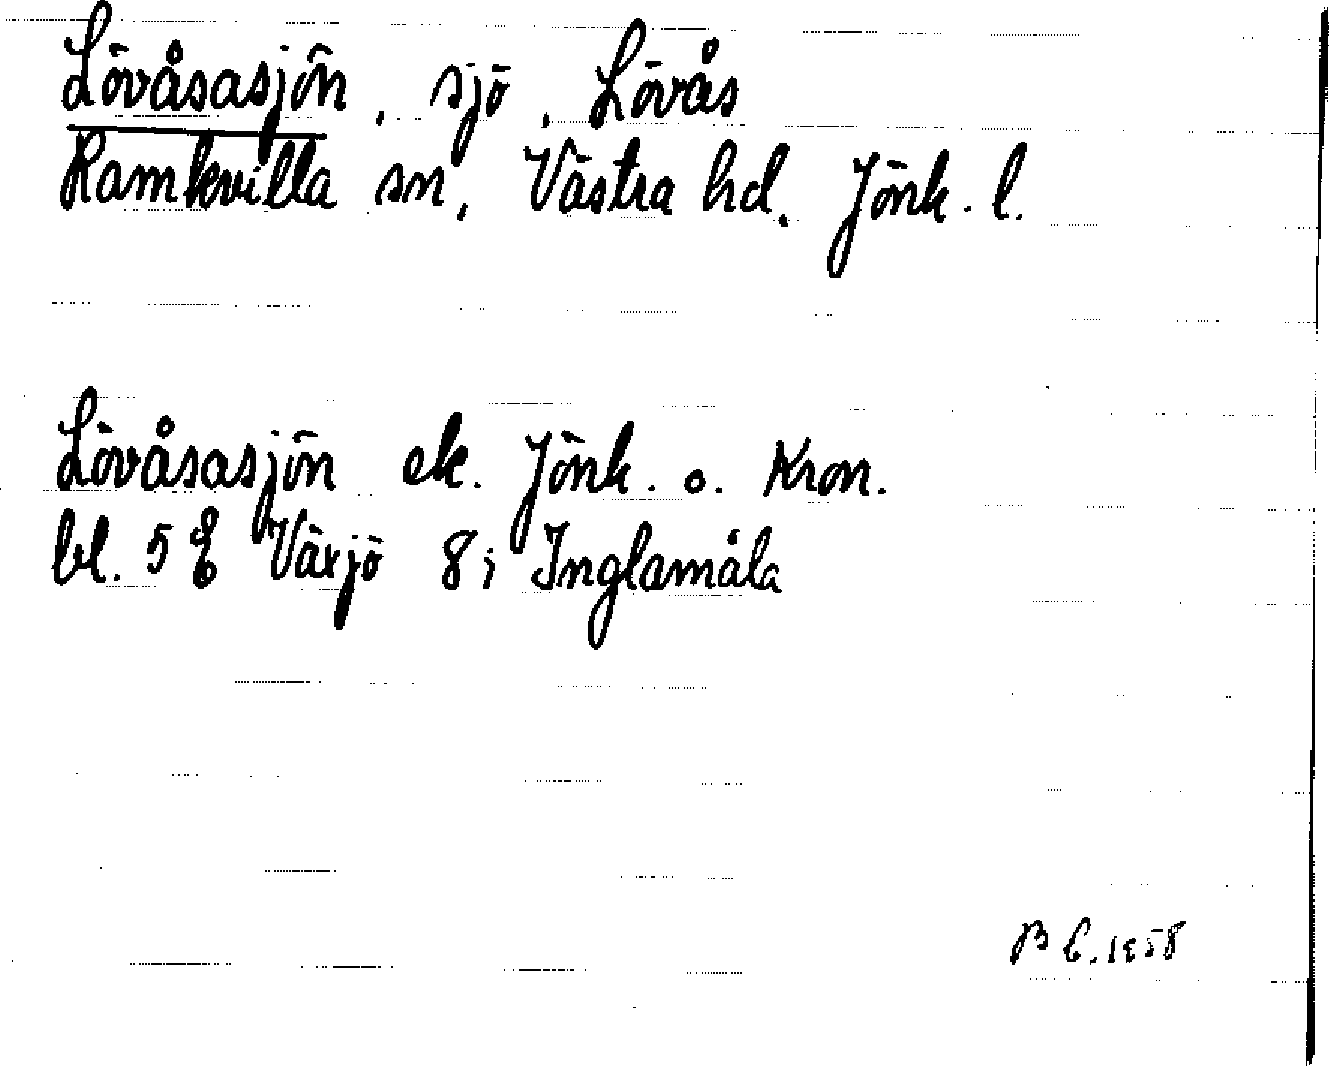 Lövåsasjön, sjö, Lövås
Ramkvilla sn, Västra hd. Jönk. l.
Lövåsasjön ek. Jönk. o. Kron.
bl. 5 E Växjö 8i Inglamåla